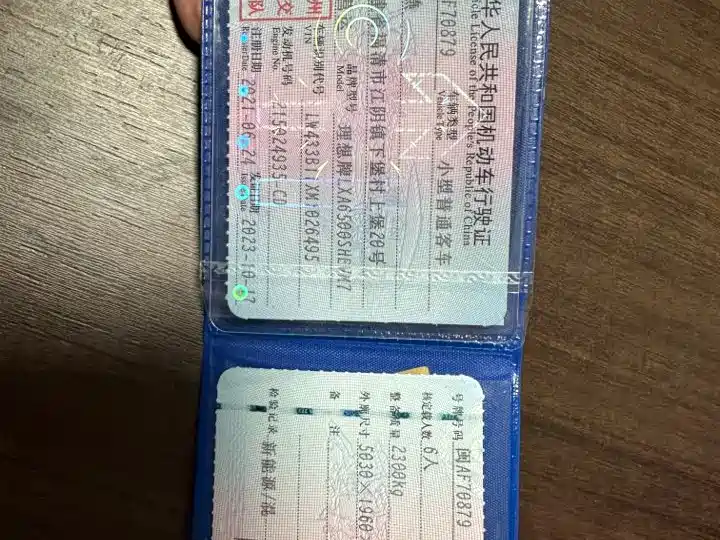 华人民共和国机动车行驶证
icle License of the People's Republic of China
F70879
车辆类型
Vehicle Type
小型普通客车
福清市江阴镇下堡村上堡20号
品牌型号
Model
理想牌LXA6500SHEVX7
车辆识别代号
VIN
LW433B1
XM1026495
发动机号码
Engine No.
注册日期
2021-06-24
发证日期
2023-10-1
州
交
队
号牌号码
闽AF70879
核定载人数
6人
整备质量
2300kg
外廓尺寸
5030×1960
备 注
检验记录
新能源/混